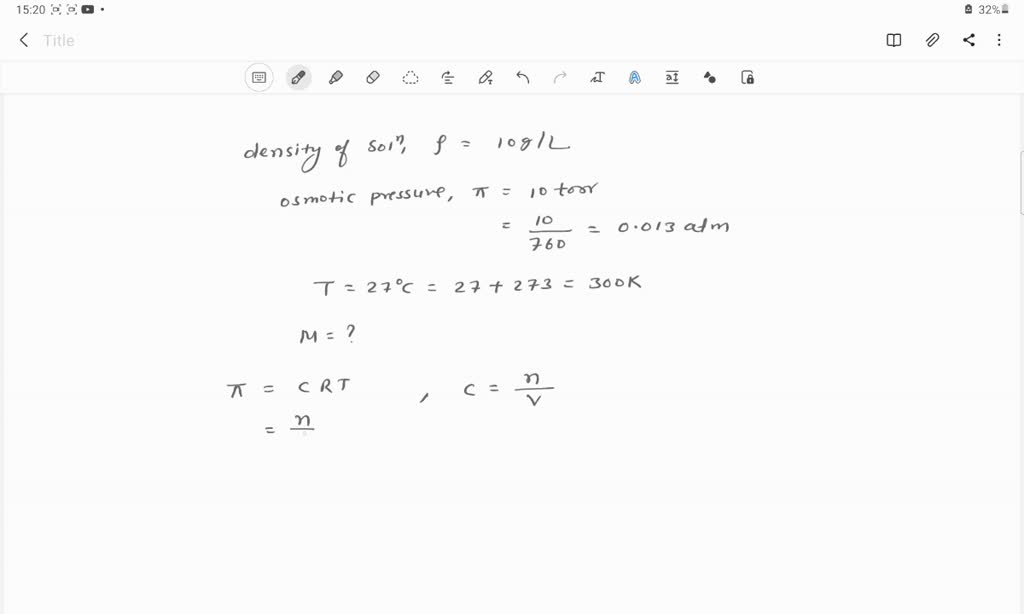 15:20
32%
Title
density of solⁿ, ρ = 10 g/L
osmotic pressure, π = 10 torr
= 10/760 = 0.013 atm
T = 27°C = 27 + 273 = 300K
M = ?
π = CRT , C = n/V
= n/